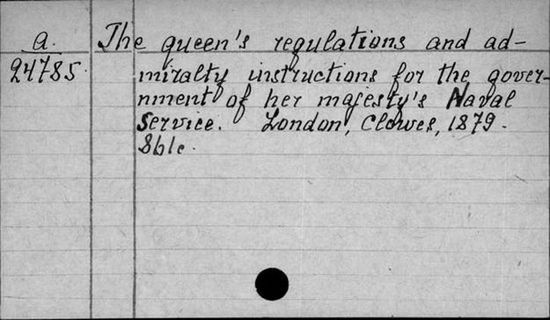 a. The queen's regulations and ad-
24785. miralty instructions for the gover-
nment of her majesty's Naval
Service. London, Clowes, 1879.